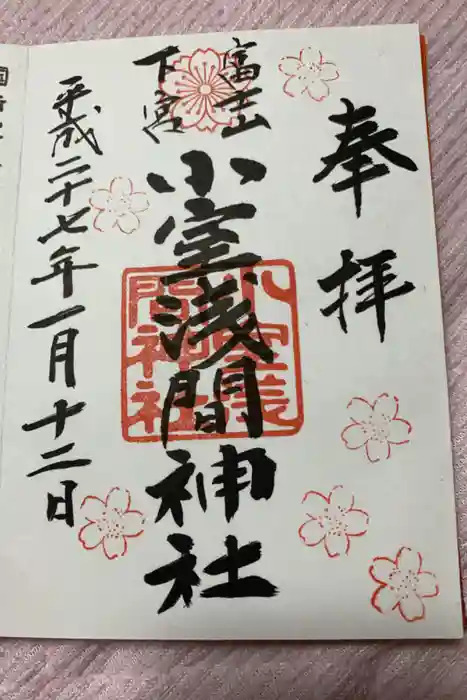 奉拝
富士山
下宮
小室浅間神社
小室浅
間神社
平成二十七年一月十二日